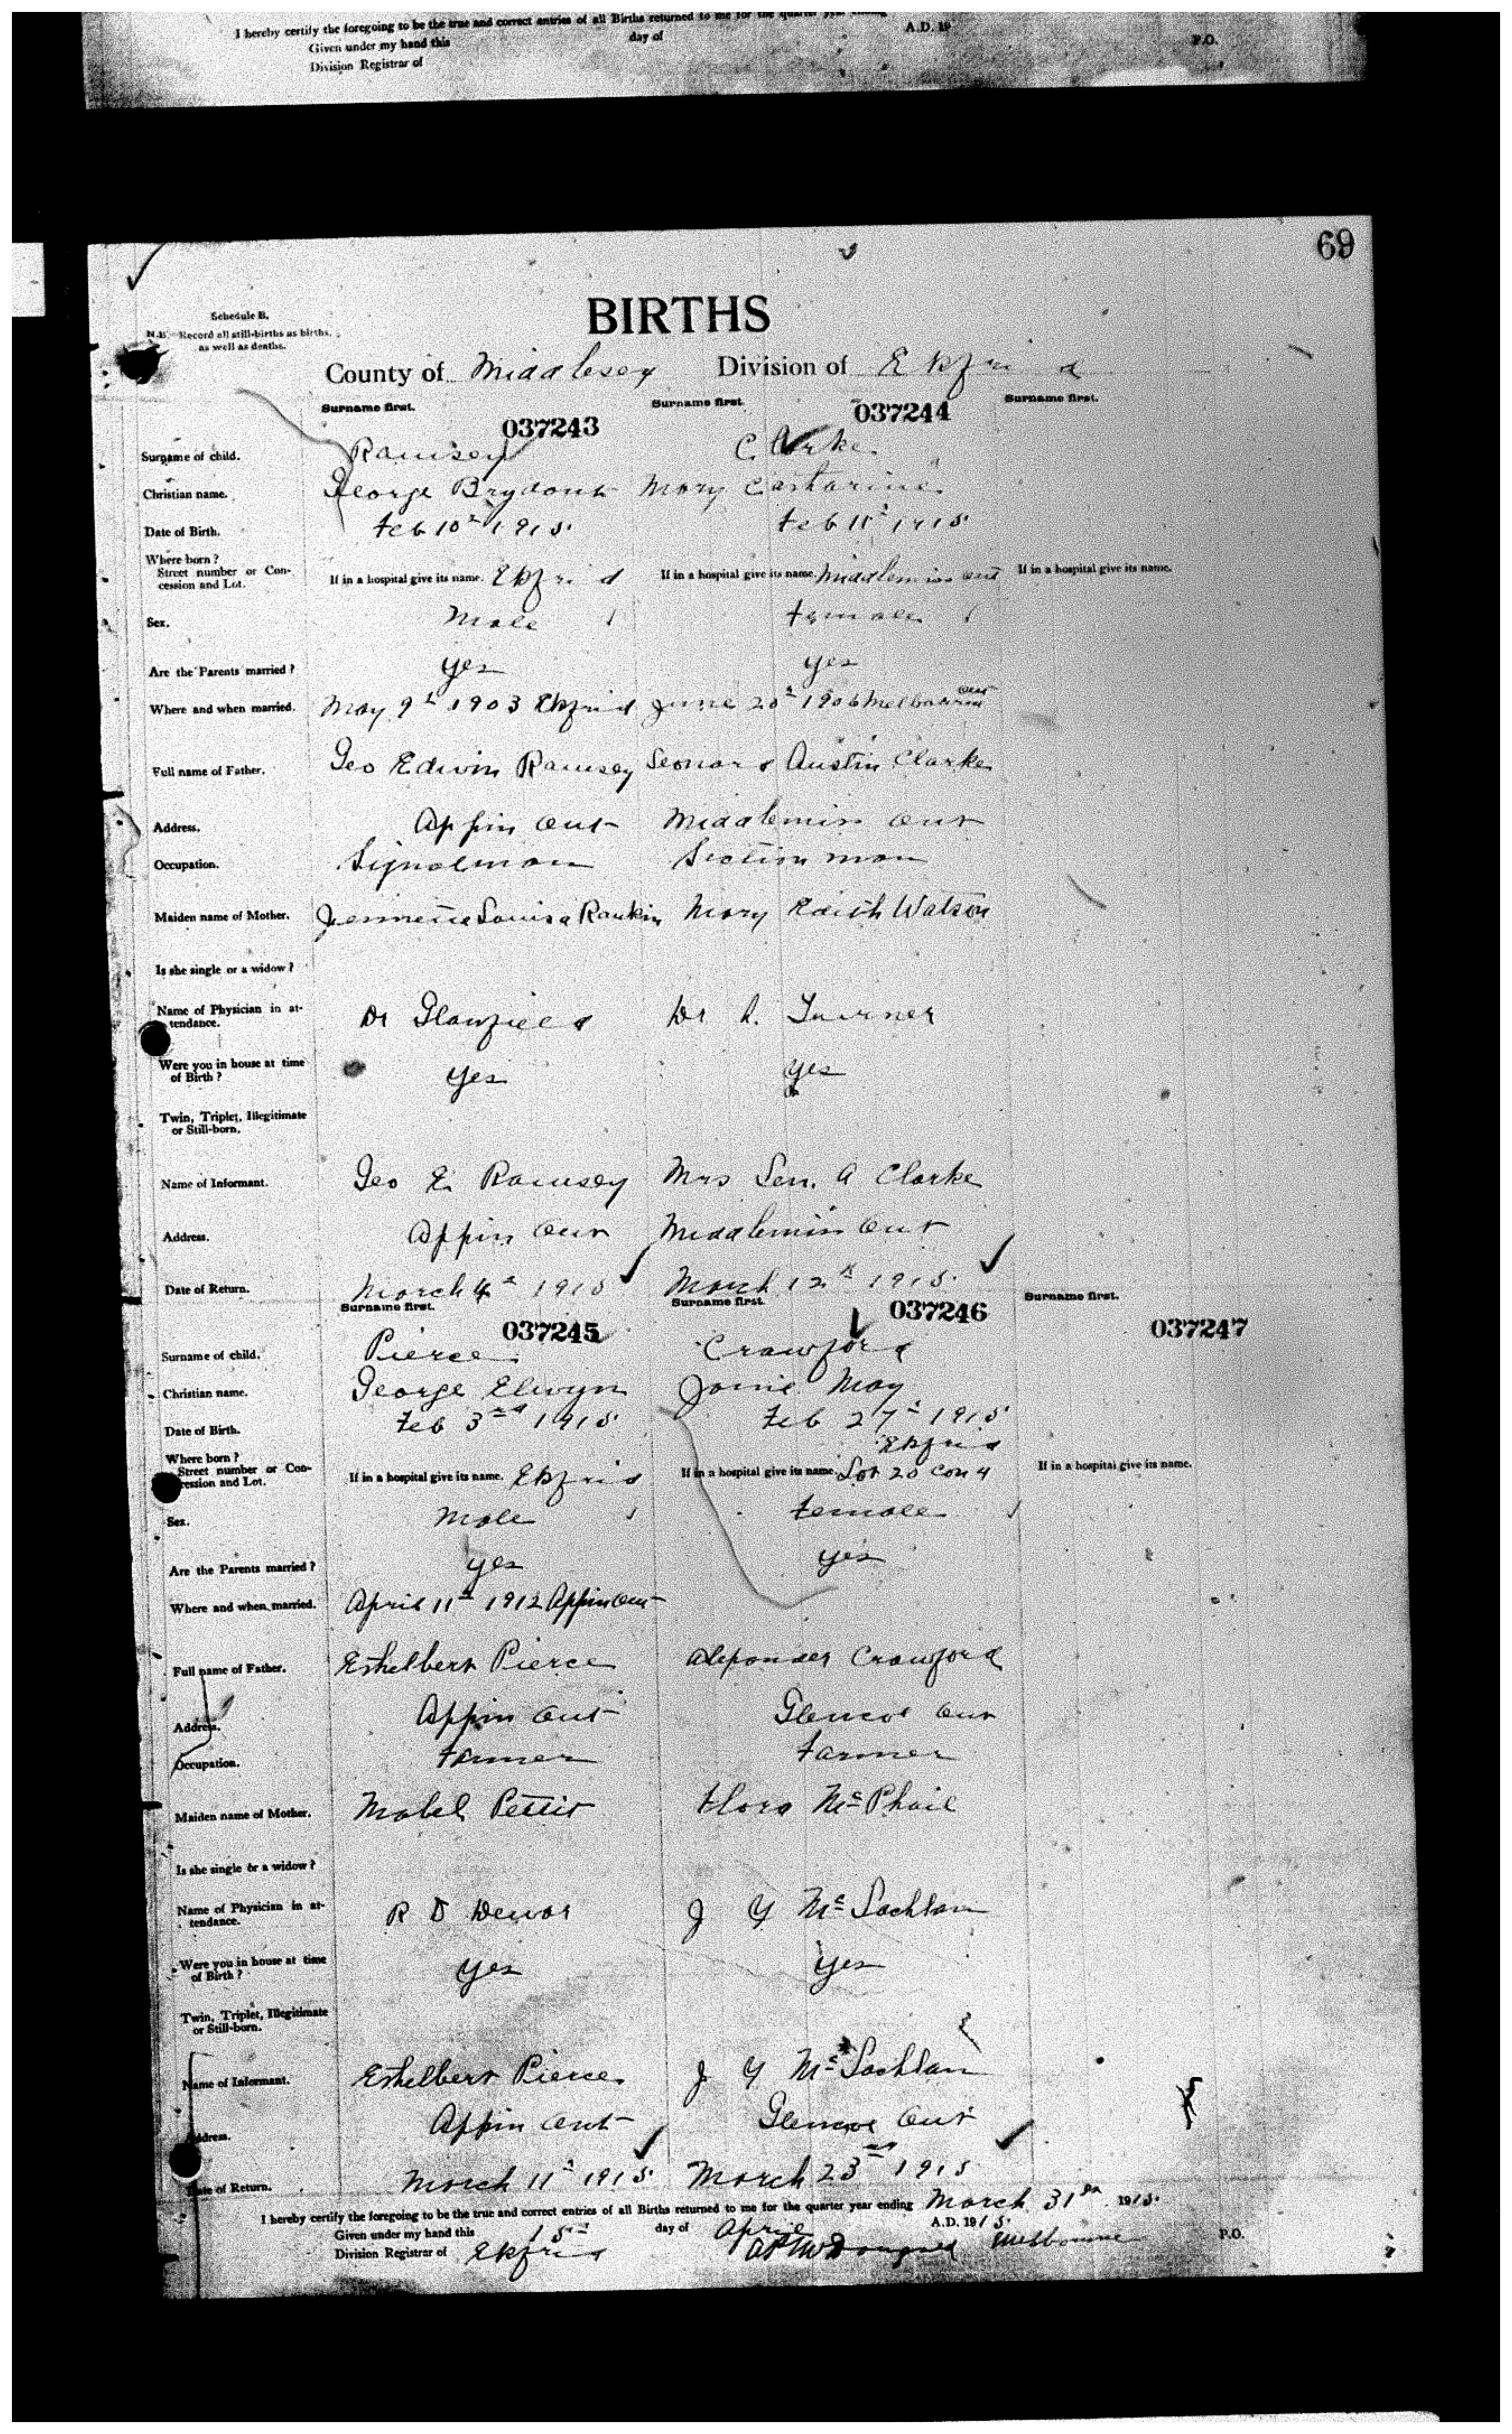 I hereby certify the foregoing to be the true and correct entries of all Births returned to me for the quarter year ending
Given under my hand this day of A.D. 19
Division Registrar of P.O.
69
Schedule B.
N.B.—Record all still-births as births, as well as deaths.
BIRTHS
County of Middlesex Division of Ekfrid
Surname first. Surname first. Surname first.
037243 037244
Surname of child. Ramsey Clarke
Christian name. George Brydon Mary Catharine
Date of Birth. Feb 10th 1915 Feb 11th 1915
Where born?
Street number or Concession and Lot. If in a hospital give its name. Ekfrid If in a hospital give its name. Middlemiss Ont If in a hospital give its name.
Sex. Male Female
Are the Parents married? yes yes
Where and when married. May 9th 1903 Ekfrid June 20th 1906 Melbourne Ont
Full name of Father. Geo Edwin Ramsey Leonard Austin Clarke
Address. Appin Ont Middlemiss Ont
Occupation. Signalman Section man
Maiden name of Mother. Jennette Louisa Rankin Mary Edith Watson
Is she single or a widow?
Name of Physician in attendance. Dr Glanfield Dr A. Turner
Were you in house at time of Birth? yes yes
Twin, Triplet, Illegitimate or Still-born.
Name of Informant. Geo E. Ramsey Mrs Len. A Clarke
Address. Appin Ont Middlemiss Ont
Date of Return. March 4th 1915 March 12th 1915
Surname first. Surname first. Surname first.
037245 037246 037247
Surname of child. Pierce Crawford
Christian name. George Elwyn Janie May
Date of Birth. Feb 3rd 1915 Feb 27th 1915
Where born?
Street number or Concession and Lot. If in a hospital give its name. Ekfrid If in a hospital give its name. Ekfrid Lot 20 Con 4 If in a hospital give its name.
Sex. Male Female
Are the Parents married? yes yes
Where and when married. April 11th 1912 Appin Ont
Full name of Father. Ethelbert Pierce Alexander Crawford
Address. Appin Ont Glencoe Ont
Occupation. Farmer Farmer
Maiden name of Mother. Mabel Pettit Flora McPhail
Is she single or a widow?
Name of Physician in attendance. R D Dewar J Y McLachlan
Were you in house at time of Birth? yes yes
Twin, Triplet, Illegitimate or Still-born.
Name of Informant. Ethelbert Pierce J Y McLachlan
Address. Appin Ont Glencoe Ont
Date of Return. March 11th 1915 March 23rd 1915
I hereby certify the foregoing to be the true and correct entries of all Births returned to me for the quarter year ending March 31st 1915.
Given under my hand this day of April A.D. 1915.
Division Registrar of Ekfrid A P McDougald Melbourne P.O.